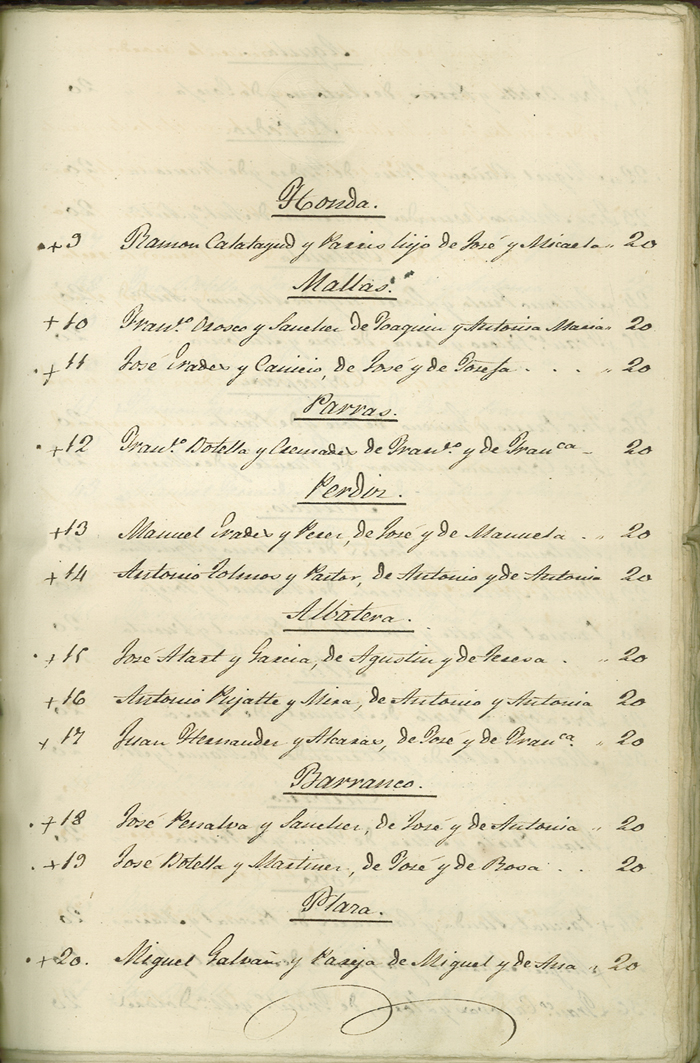 Honda.
+9 Ramon Calatayud y Parres hijo de José y Micaela " 20
Mallas.
+10 Franco. Orosco y Sanchez de Joaquin y Antonia Maria " 20
+11 José Pradex y Canicio, de José y de Josefa . . . " 20
Parras.
+12 Franco. Botella y Cremadex de Franco. y de Franca - 20
Perdiz.
+13 Manuel Pradex y Perez, de José y de Manuela . " 20
+14 Antonio Tolmos y Pastor, de Antonio y de Antonia 20
Albatera.
+15 José Alart y Garcia, de Agustin y de Teresa . " 20
+16 Antonio Pujalte y Mira, de Antonio y Antonia 20
+17 Juan Hernandez y Alcarax, de José y de Franca. " 20
Barranco.
+18 José Penalva y Sanchez, de José y de Antonia " 20
+19 José Botella y Martinez, de José y de Rosa . . 20
Plaza.
+20. Miguel Galvañ y Pareja de Miguel y de Ana " 20